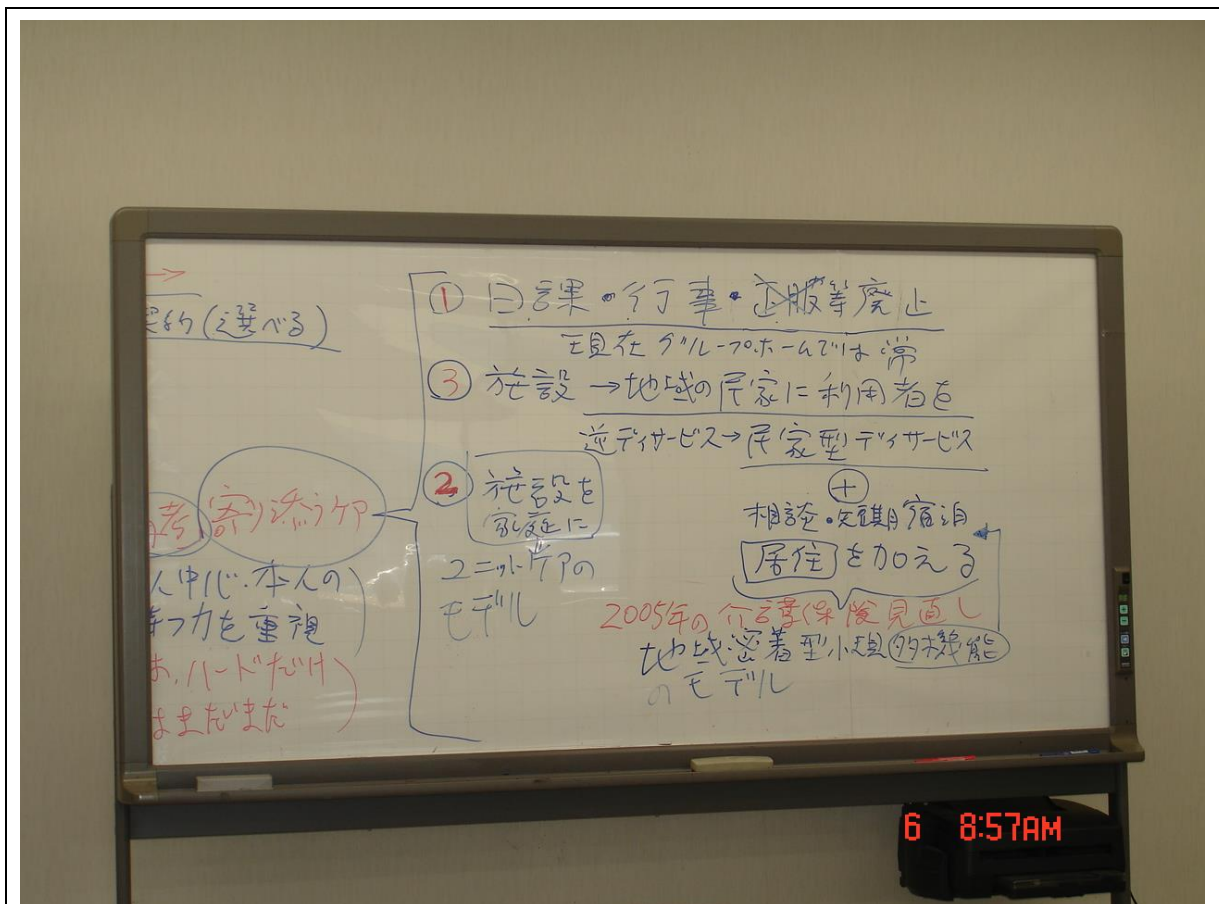 →
契約(選べる)
寄り添うケア
人中心・本人の
持つ力を重視
ハードだけ
はまだまだ
① 日課・行事・正服等廃止
現在グループホームでは常
③ 施設→地域の民家に利用者を
逆デイサービス→民家型デイサービス
+
相談・短期宿泊
居住を加える
② 施設を
家庭に
ユニットケアの
モデル
2005年の介護保険見直し
地域密着型小規多機能
のモデル
6 8:57AM